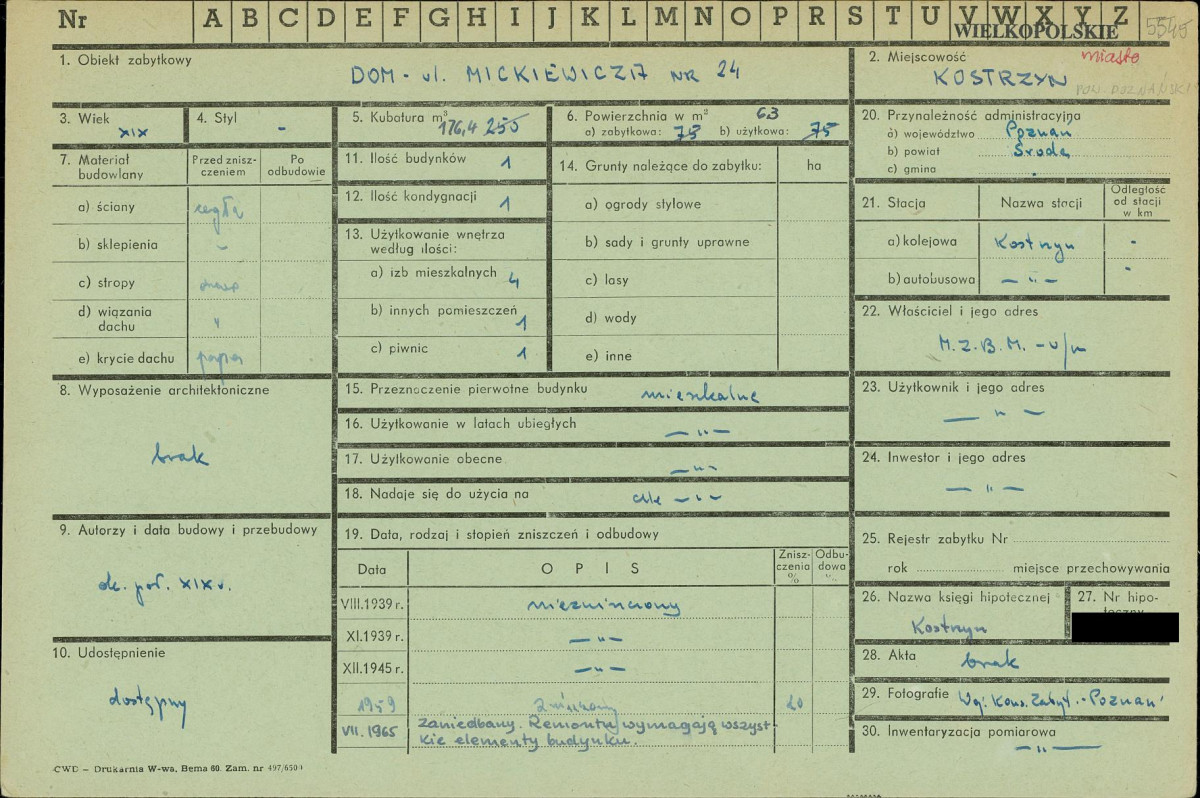 Nr A B C D E F G H I J K L M N O P R S T U V W X Y Z
WIELKOPOLSKIE
5545
1. Obiekt zabytkowy
DOM - ul. MICKIEWICZA NR 24
2. Miejscowość
miasto
KOSTRZYN
POW. POZNAŃSKI
3. Wiek
XIX
4. Styl
-
5. Kubatura m³
176,4 255
6. Powierzchnia w m² 63
a) zabytkowa: 75 b) użytkowa: 75
20. Przynależność administracyjna
a) województwo Poznań
b) powiat Środa
c) gmina
7. Materiał budowlany
Przed znisz-
czeniem
Po
odbudowie
a) ściany cegła
b) sklepienia -
c) stropy
d) wiązania
dachu "
e) krycie dachu papa
11. Ilość budynków 1
12. Ilość kondygnacji 1
13. Użytkowanie wnętrza
według ilości:
a) izb mieszkalnych 4
b) innych pomieszczeń 1
c) piwnic 1
14. Grunty należące do zabytku: ha
a) ogrody stylowe
b) sady i grunty uprawne
c) lasy
d) wody
e) inne
21. Stacja Nazwa stacji
Odległość
od stacji
w km
a) kolejowa Kostrzyn -
b) autobusowa — " — -
22. Właściciel i jego adres
M.Z.B.M. - v/m
8. Wyposażenie architektoniczne
brak
15. Przeznaczenie pierwotne budynku mieszkalne
16. Użytkowanie w latach ubiegłych — " —
17. Użytkowanie obecne — " —
18. Nadaje się do użycia na cele — " —
23. Użytkownik i jego adres
— " —
24. Inwestor i jego adres
— " —
9. Autorzy i data budowy i przebudowy
ok. poł. XIX w.
19. Data, rodzaj i stopień zniszczeń i odbudowy
Data OPIS
Znisz-
czenia
%
Odbu-
dowa
%
VIII.1939 r. niezniszczony
XI.1939 r. — " —
XII.1945 r. — " —
1959 Zniszczony 20
VII.1965 Zaniedbany. Remontu wymagają wszyst-
kie elementy budynku.
25. Rejestr zabytku Nr
rok miejsce przechowywania
26. Nazwa księgi hipotecznej
Kostrzyn
27. Nr hipo-
teczny
10. Udostępnienie
dostępny
28. Akta brak
29. Fotografie Woj. Kons. Zabyt. - Poznań
30. Inwentaryzacja pomiarowa
— " —
CWD — Drukarnia W-wa, Bema 60. Zam. nr 497/6500